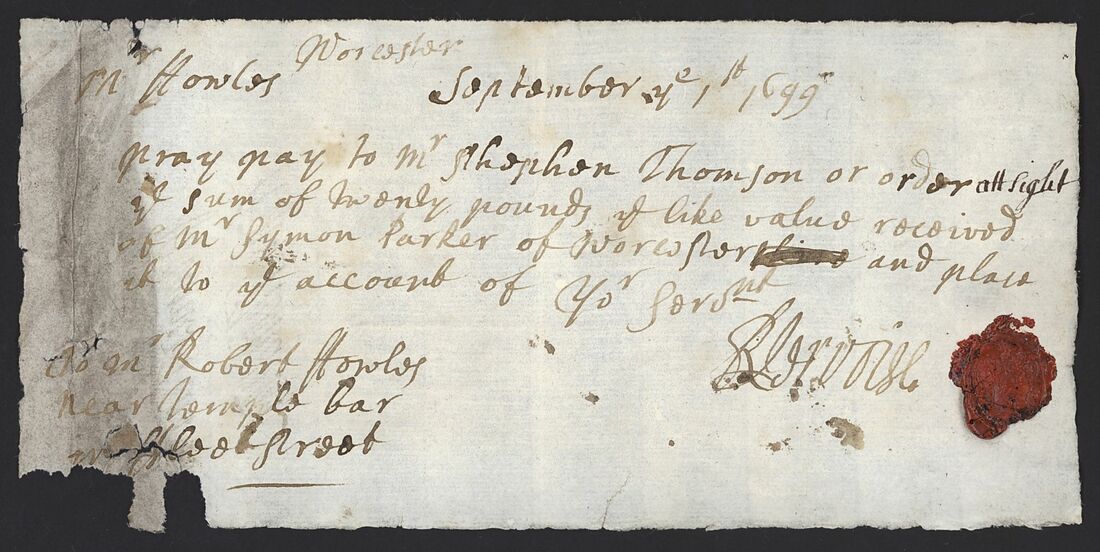 Worcester
Mr Howles September ye 1st 1699
pray pay to Mr Shephen Thomson or order att sight
ye sum of twenty pounds ye like value received
of Mr Symon Parker of Worcester and place
it to ye account of Yor Servnt
To Mr Robert Howles
near temple bar
in ffleet street